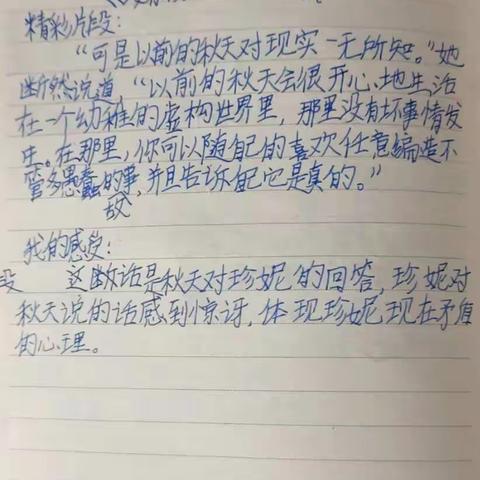 精彩片段：
“可是以前的秋天对现实一无所知。”她
断然说道“以前的秋天会很开心地生活
在一个幼稚的虚构世界里，那里没有坏事情发
生。在那里，你可以随自己的喜欢任意编造不
管多愚蠢的事，并且告诉自己它是真的。”
故
我的感受：
段 这断话是秋天对珍妮的回答，珍妮对
秋天说的话感到惊讶，体现珍妮现在矛盾
的心理。